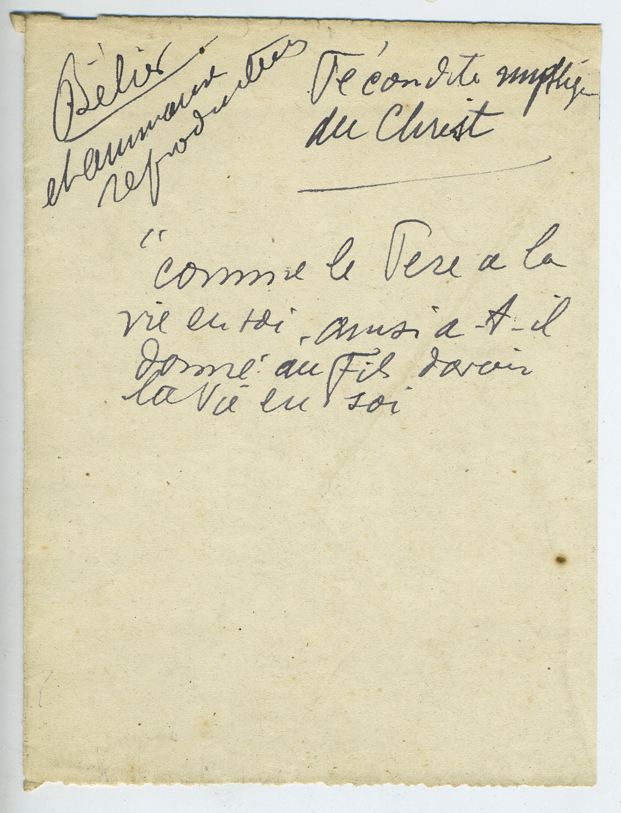 Bélier.
et animaux
reproducteurs
Fécondité mystiq
du Christ
"comme le Père a la
vie en soi, ainsi a-t-il
donné au Fils d'avoir
la Vie en soi